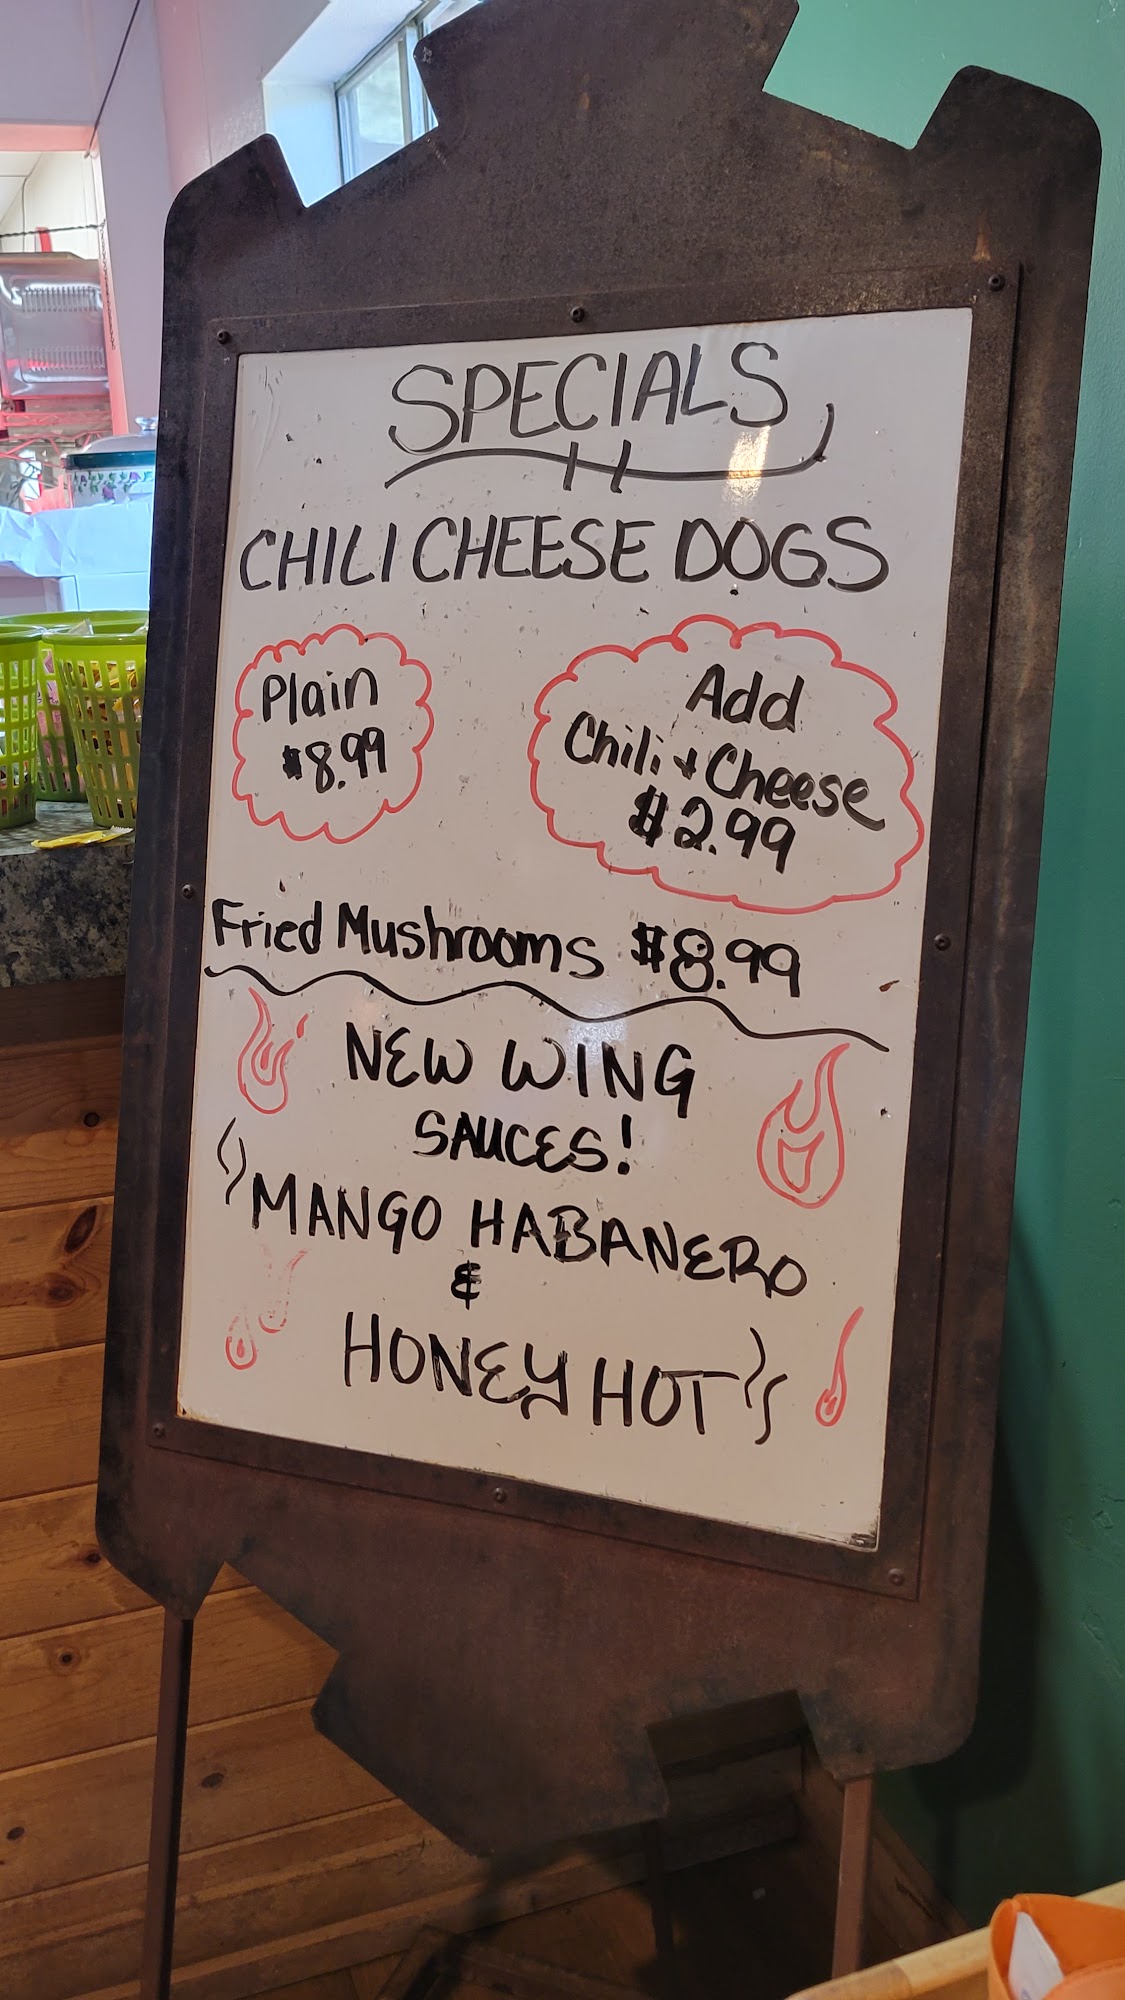 SPECIALS
CHILI CHEESE DOGS
Plain
$8.99
Add
Chili + Cheese
$2.99
Fried Mushrooms $8.99
NEW WING
SAUCES!
MANGO HABANERO
&
HONEY HOT